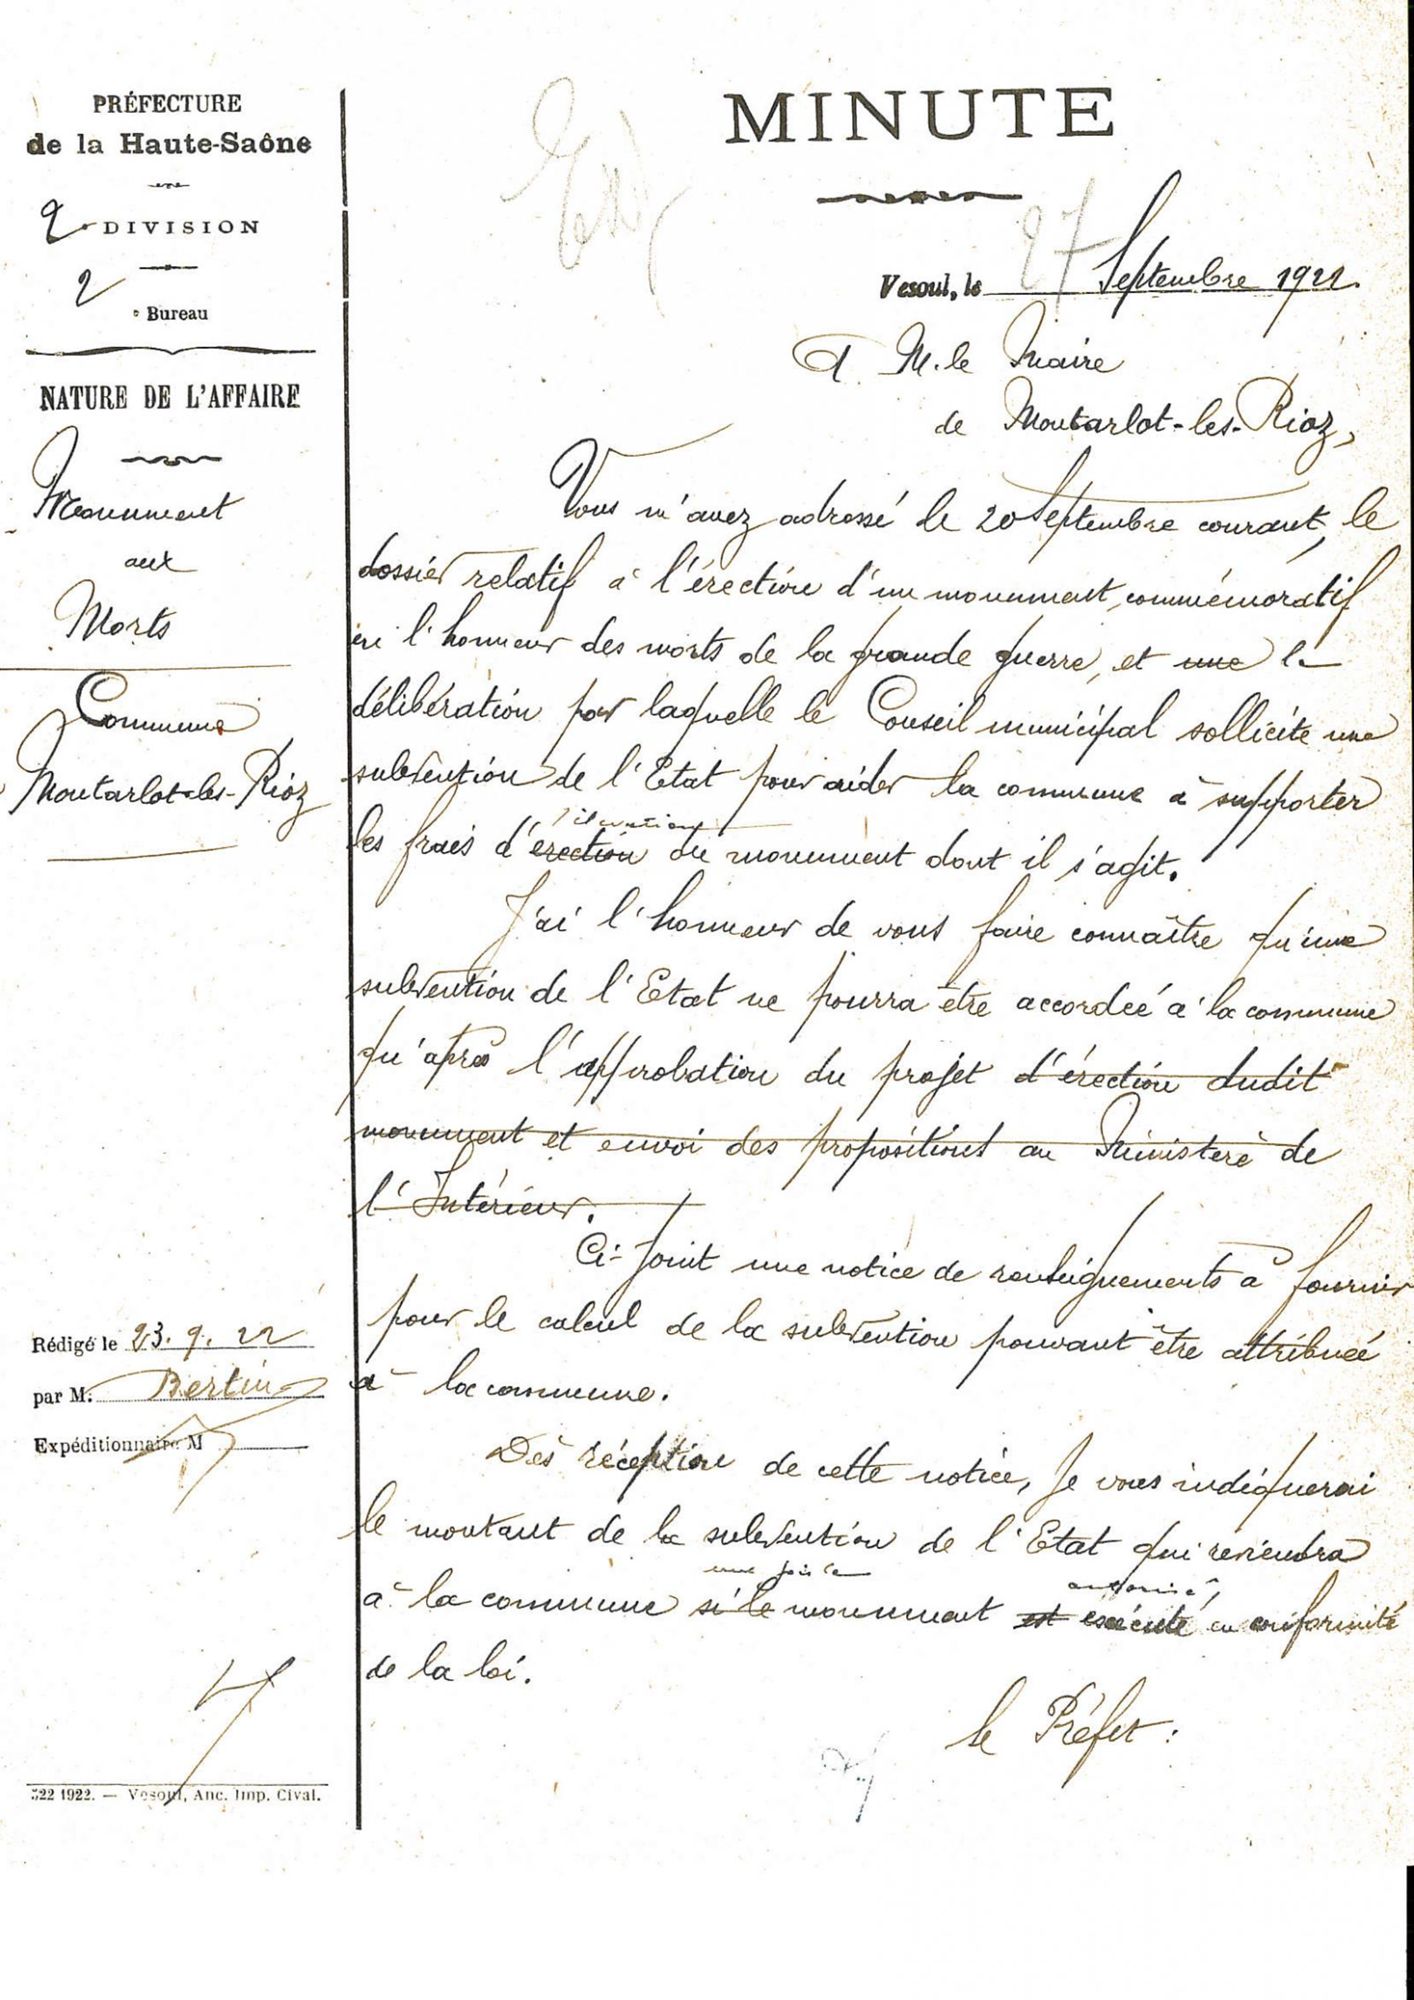 PRÉFECTURE
de la Haute-Saône
2e DIVISION
2
e Bureau
NATURE DE L'AFFAIRE
Monument
aux
Morts
Commune
Montarlot-les-Rioz
Rédigé le 23.9.22
par M. Bertin
Expéditionnaire M
322 1922. — Vesoul, Anc. Imp. Cival.
MINUTE
Vesoul, le 27 Septembre 1922.
A M. le Maire
de Montarlot-les-Rioz,
Vous m'avez adressé le 20 Septembre courant, le
dossier relatif à l'érection d'un monument commémoratif
en l'honneur des morts de la grande guerre, et une la
délibération par laquelle le Conseil municipal sollicite une
subvention de l'Etat pour aider la commune à supporter
les frais d'érection du monument dont il s'agit.
J'ai l'honneur de vous faire connaître qu'une
subvention de l'Etat ne pourra être accordée à la commune
qu'après l'approbation du projet d'érection dudit
monument et envoi des propositions au Ministère de
l'Intérieur.
Ci-joint une notice de renseignements à fournir
pour le calcul de la subvention pouvant être attribuée
à la commune.
Dès réception de cette notice, je vous indiquerai
le montant de la subvention de l'Etat qui reviendra
une fois le autorisé
à la commune si le monument est exécuté en conformité
de la loi.
Le Préfet :